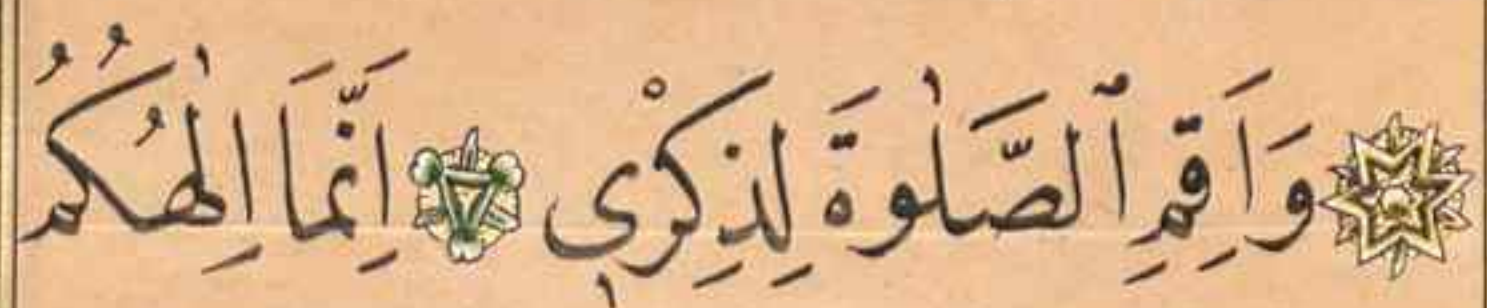 وَاَقِمِ ٱلصَّلٰوةَ لِذِكْرٖي اِنَّمَٓا اِلٰهُكُمُ